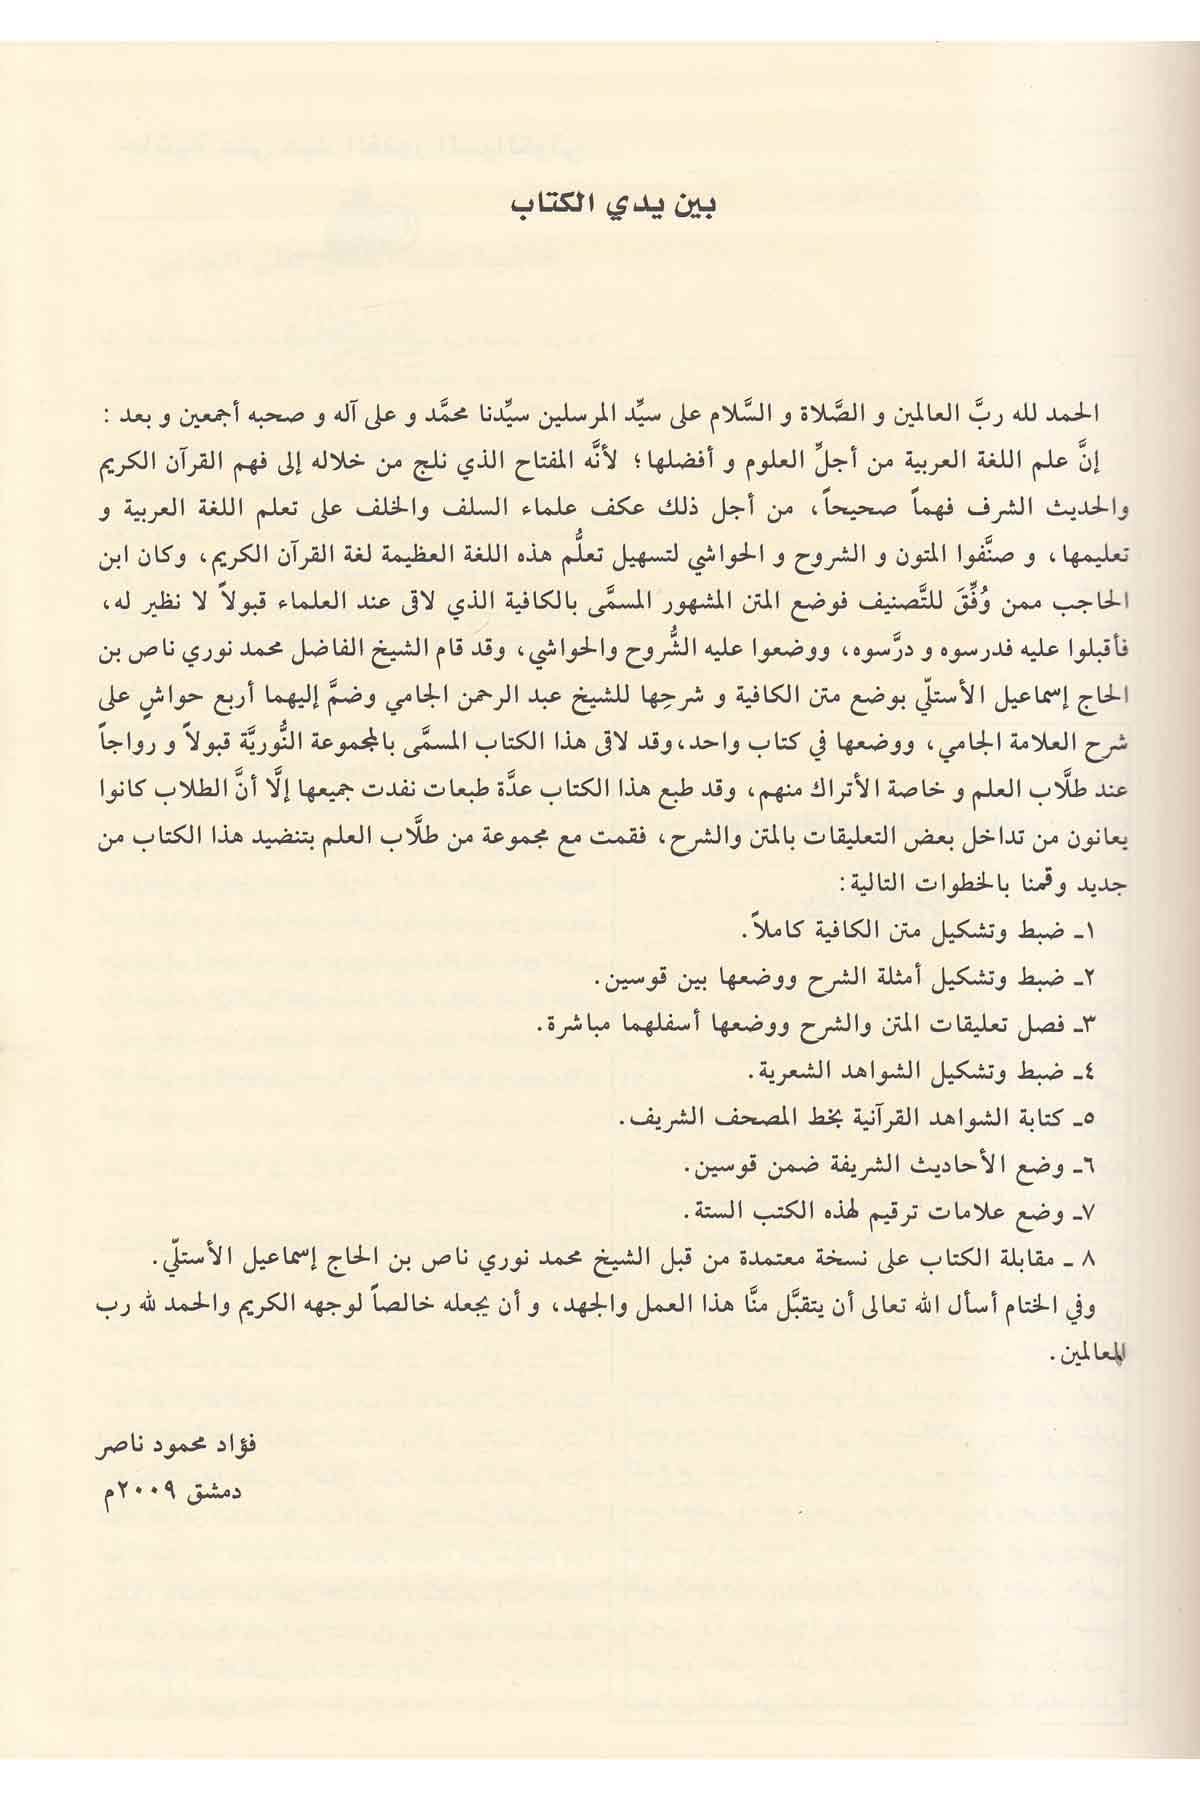 بين يدي الكتاب
الحمد لله ربَّ العالمين و الصَّلاة و السَّلام على سيِّد المرسلين سيِّدنا محمَّد و على آله و صحبه أجمعين و بعد :
إنَّ علم اللغة العربية من أجلِّ العلوم و أفضلها؛ لأنَّه المفتاح الذي نلج من خلاله إلى فهم القرآن الكريم
والحديث الشرف فهماً صحيحاً، من أجل ذلك عكف علماء السلف والخلف على تعلم اللغة العربية و
تعليمها، و صنَّفوا المتون و الشروح و الحواشي لتسهيل تعلُّم هذه اللغة العظيمة لغة القرآن الكريم، وكان ابن
الحاجب ممن وُفِّقَ للتَّصنيف فوضع المتن المشهور المسمَّى بالكافية الذي لاقى عند العلماء قبولاً لا نظير له،
فأقبلوا عليه فدرسوه و درَّسوه، ووضعوا عليه الشُّروح والحواشي، وقد قام الشيخ الفاضل محمد نوري ناص بن
الحاج إسماعيل الأستلّي بوضع متن الكافية و شرحِها للشيخ عبد الرحمن الجامي وضمَّ إليهما أربع حواشٍ على
شرح العلامة الجامي، ووضعها في كتاب واحد،وقد لاقى هذا الكتاب المسمَّى بالمجموعة النُّوريَّة قبولاً و رواجاً
عند طلَّاب العلم و خاصة الأتراك منهم، وقد طبع هذا الكتاب عدَّة طبعات نفدت جميعها إلَّا أنَّ الطلاب كانوا
يعانون من تداخل بعض التعليقات بالمتن والشرح، فقمت مع مجموعة من طلَّاب العلم بتنضيد هذا الكتاب من
جديد وقمنا بالخطوات التالية:
١ـ ضبط وتشكيل متن الكافية كاملاً.
٢ـ ضبط وتشكيل أمثلة الشرح ووضعها بين قوسين.
٣ـ فصل تعليقات المتن والشرح ووضعها أسفلهما مباشرة.
٤ـ ضبط وتشكيل الشواهد الشعرية.
٥ـ كتابة الشواهد القرآنية بخط المصحف الشريف.
٦ـ وضع الأحاديث الشريفة ضمن قوسين.
٧ـ وضع علامات ترقيم لهذه الكتب الستة.
٨ ـ مقابلة الكتاب على نسخة معتمدة من قبل الشيخ محمد نوري ناص بن الحاج إسماعيل الأستلّي.
وفي الختام أسأل الله تعالى أن يتقبَّل منَّا هذا العمل والجهد، و أن يجعله خالصاً لوجهه الكريم والحمد لله رب
العالمين.
فؤاد محمود ناصر
دمشق ٢٠٠٩م